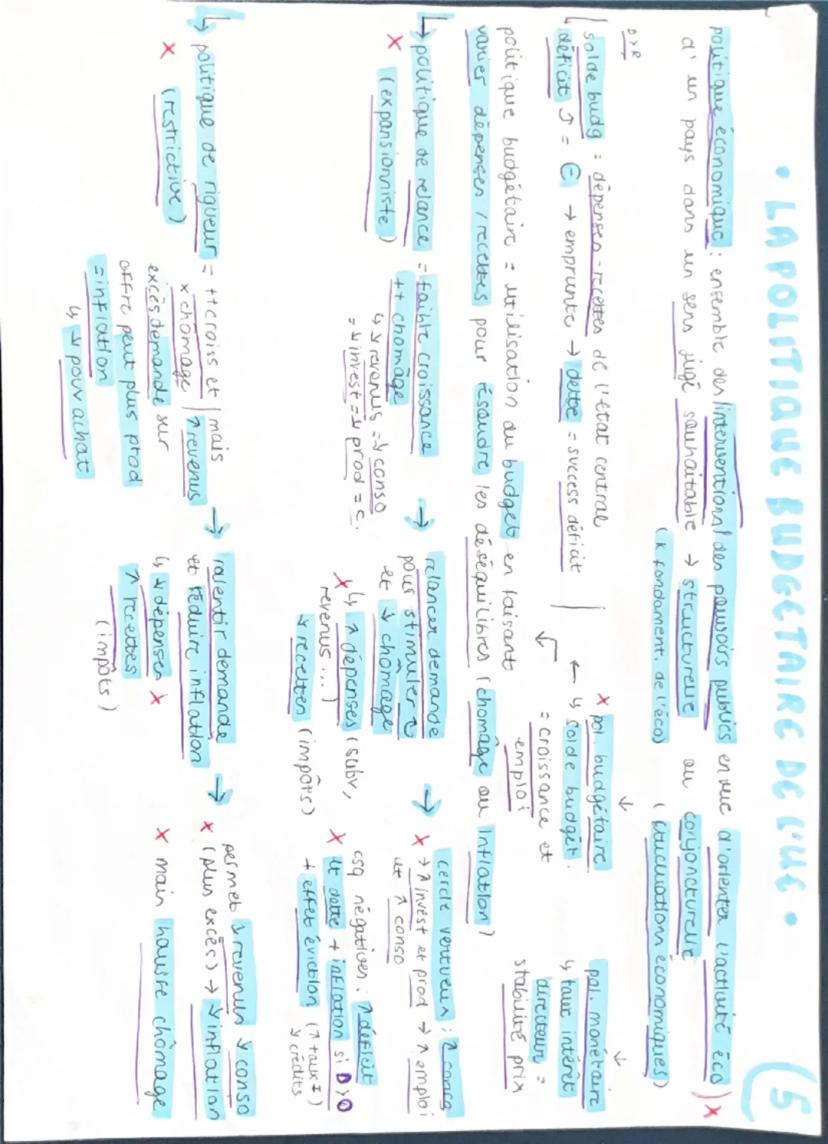 • LA POLITIQUE BUDGETAIRE DE L'UE •
5
politique économique : ensemble des interventions des pouvoirs publics en vue d'orienter l'activité éco
d'un pays dans un sens jugé souhaitable → structurelle ou conjoncturelle
(k fondament. de l'éco) (fluctuations économiques)
D>R
solde budg = dépenses-recettes de l'état central
↳ déficit ↗ = € → emprunte → dette = success déficit
pol. budgétaire
↳ solde budget.
= croissance et
emploi
pol. monétaire
↳ taux intérêt
directeur =
stabilité prix
politique budgétaire = utilisation du budget en faisant
varier dépenses / recettes pour résoudre les déséquilibres (chômage ou inflation)
↳ politique de relance = faible croissance
(expansionniste) ++ chômage
↳ ↘ revenus = ↘ conso
= ↘ invest = ↘ prod = c.
→ relancer demande
pour stimuler
et ↓ chômage
↳ ↗ dépenses (subv,
revenus ...)
↘ recettes (impôts)
→ cercle vertueux : ↗ conso
→ ↗ invest et prod → ↗ emploi
et ↗ conso
csq négatives : ↗ déficit
et dette + inflation si D>O
+ effet éviction (↗ taux I)
↘ crédits
↳ politique de rigueur = ++ croiss et mais
(restrictive) x chomage ↗ revenus
excès demande sur
offre peut plus prod
= inflation
↳ ↘ pouv achat
→ ralentir demande
et réduire inflation
↳ ↘ dépenses
↗ recettes
(impôts)
→ permet ↘ revenus ↘ conso
(plus excès) → ↘ inflation
mais hausse chômage